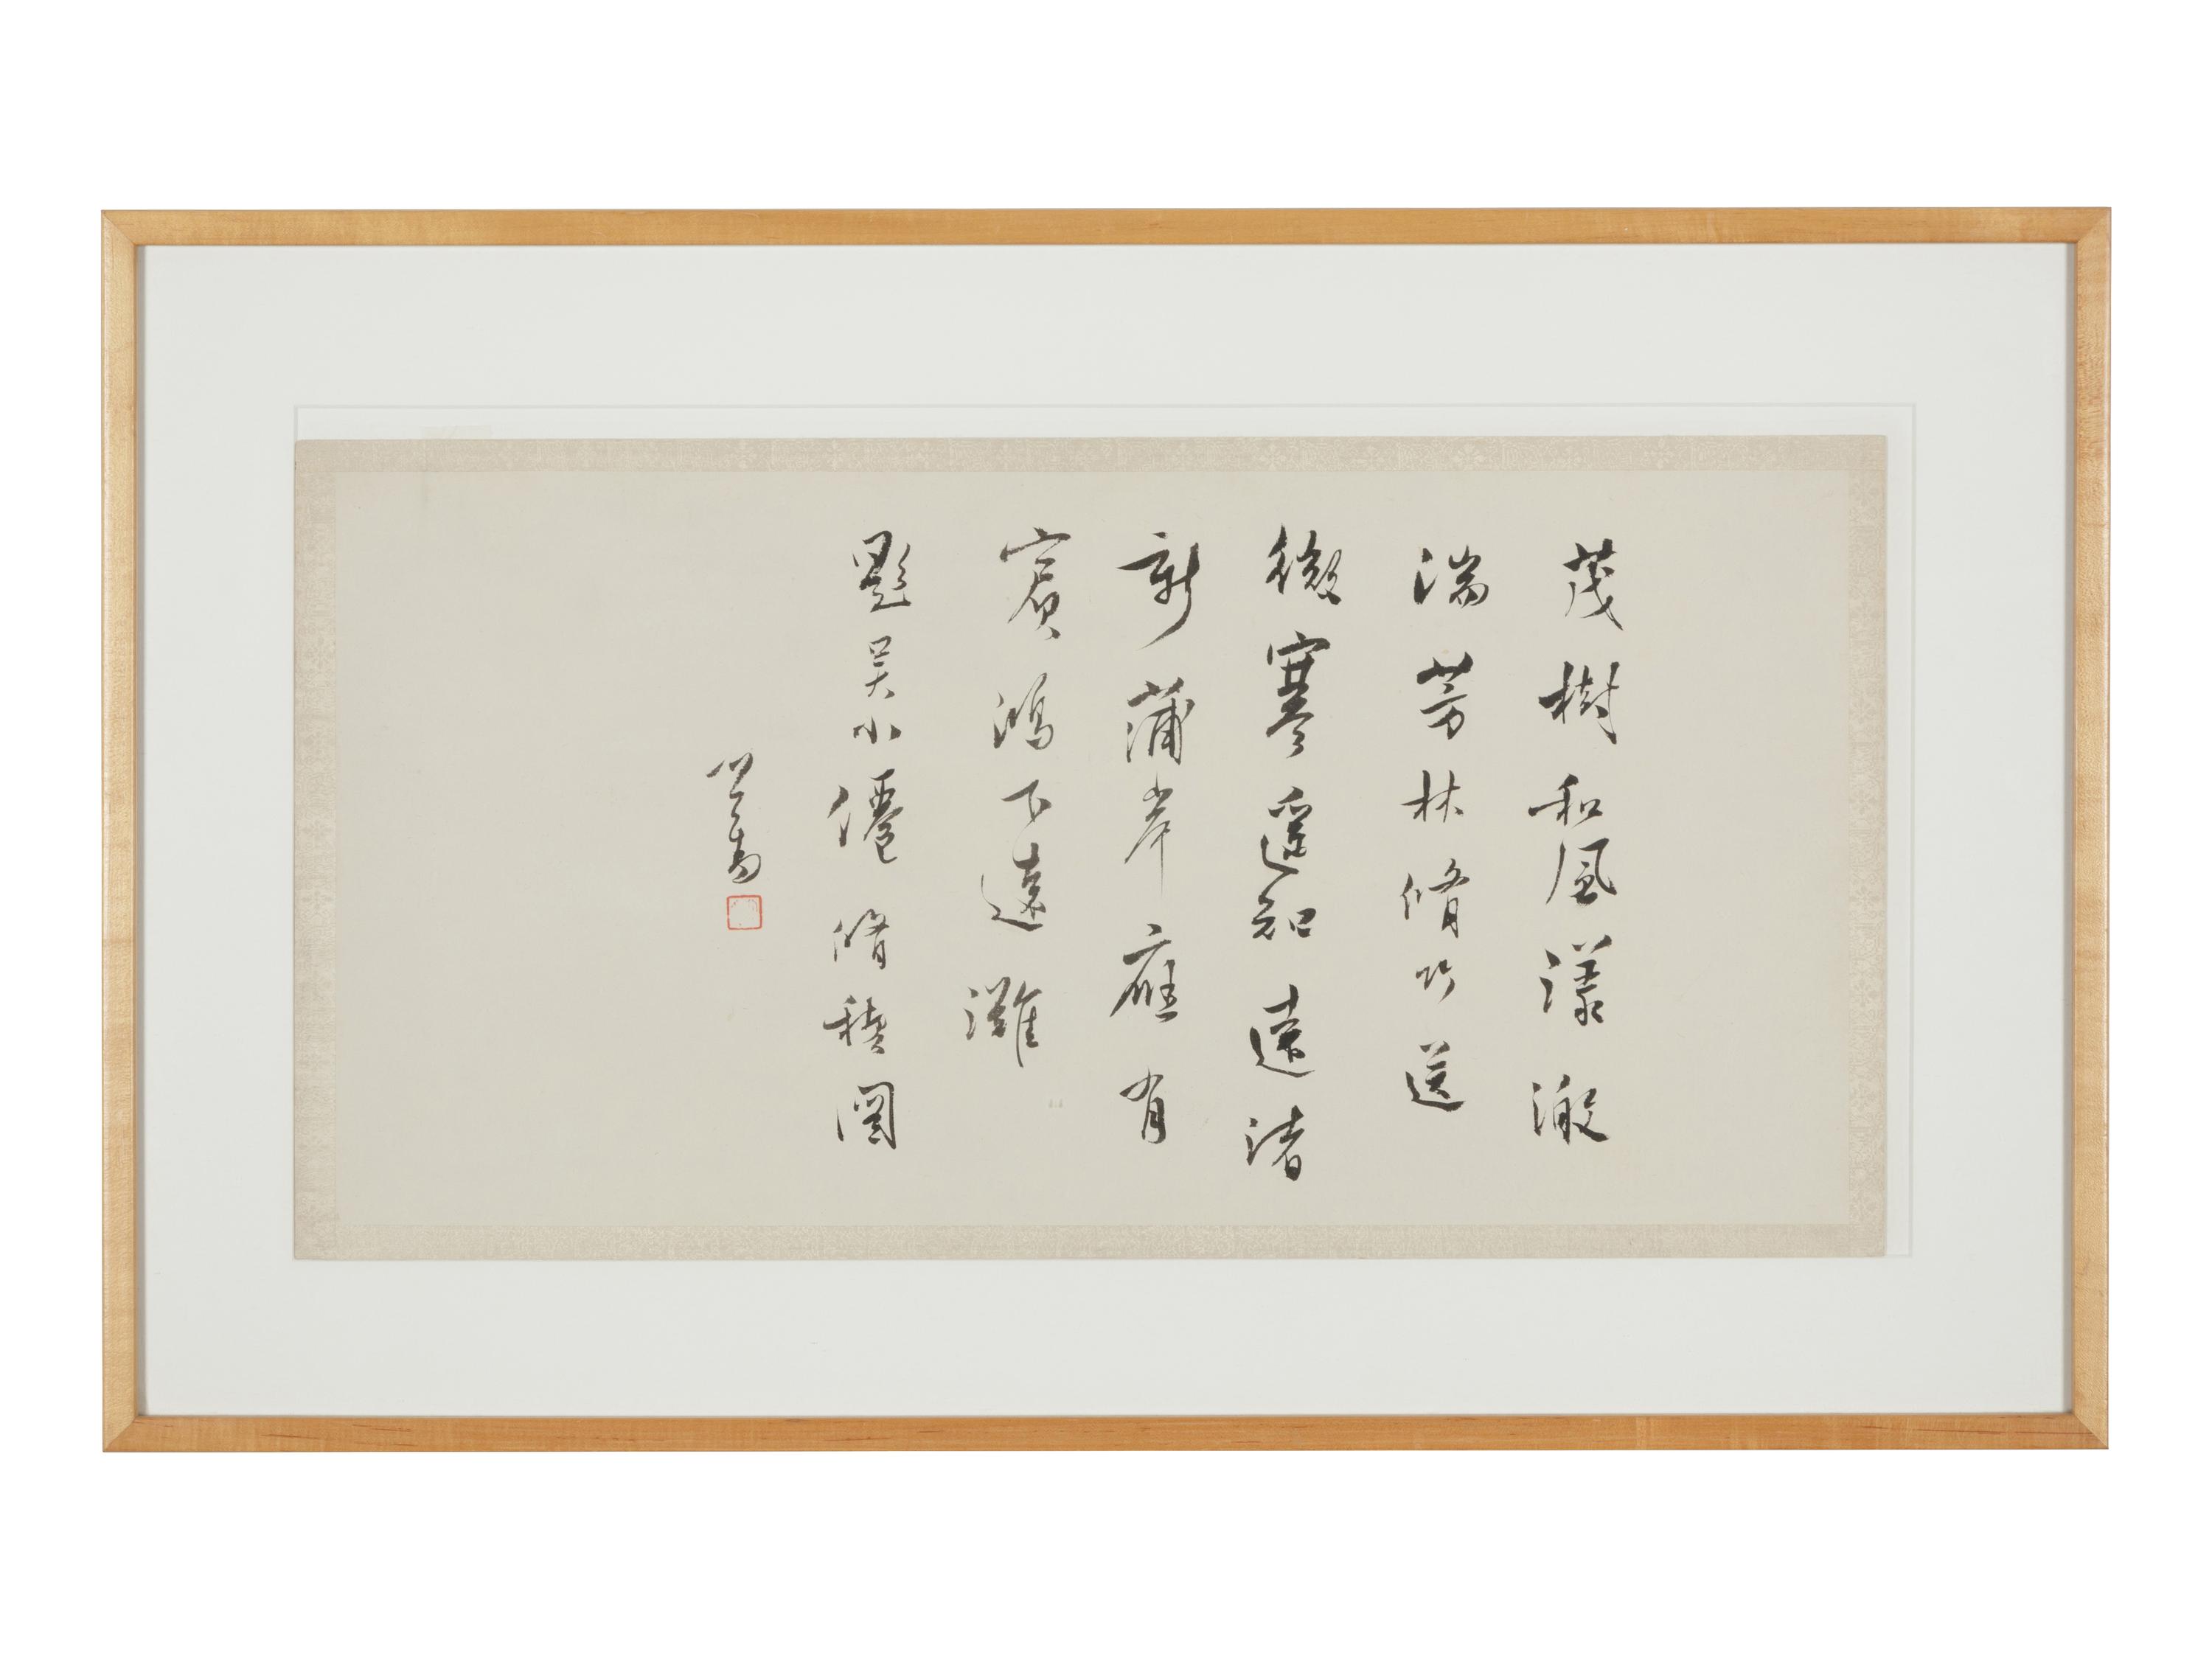 茂樹和風漾澂
湍芳林脩竹送
微寒遥知遠渚
新蒲岸應有
賓鴻下遠灘
題吳小僊脩稧圖
心畬